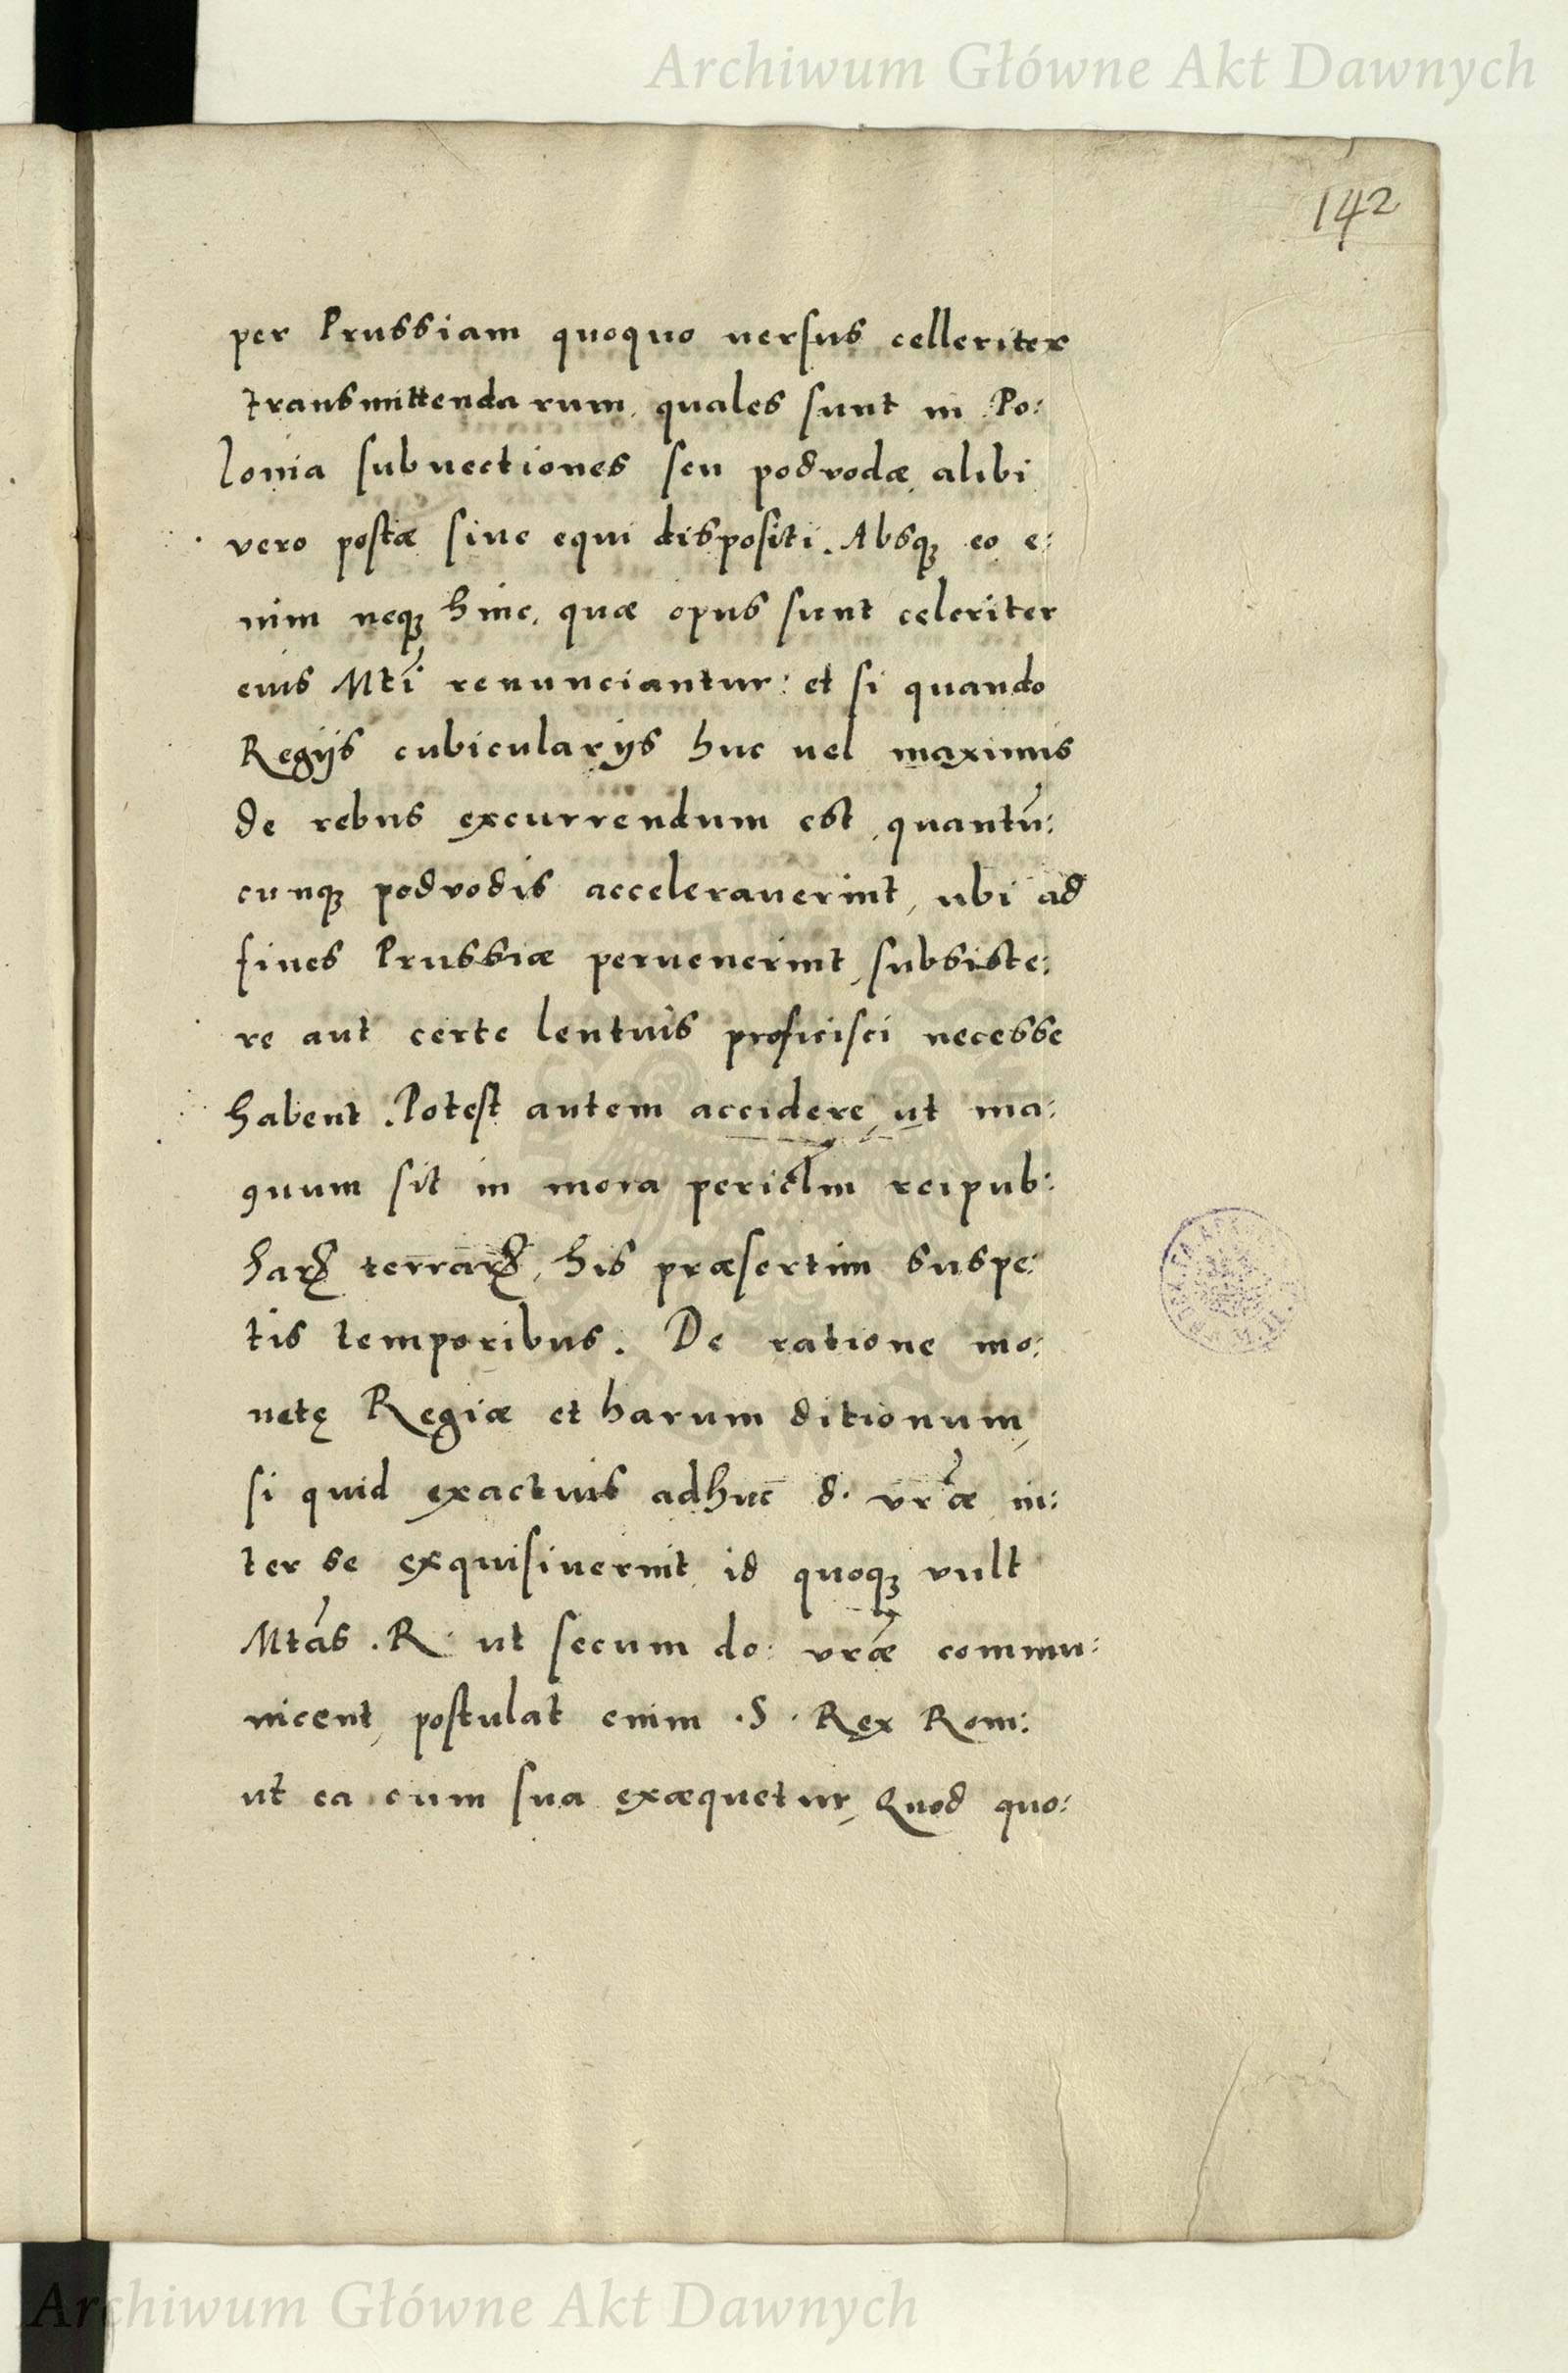 Archiwum Główne Akt Dawnych
142
per Prussiam quoquo uersus celleriter
transmittendarum, quales sunt in Po:
lonia subuectiones seu podvodæ, alibi
vero postæ siue equi dispositi. Absqꝫ eo e:
nim neqꝫ hinc, quæ opus sunt celeriter
eius Mti renunciantur: et si quando
Regijs cubicularijs huc uel maximis
de rebus excurrendum est, quantū:
cunqꝫ podvodis accelerauerint, ubi ad
fines Prussiæ peruenerint, subsiste:
re aut certe lentius proficisci necesse
habent. Potest autem accidere, ut ma:
gnum sit in mora pericl̃m reipub:
harꝝ terrarꝝ, his præsertim suspe:
tis temporibus. De ratione mo:
netę Regiæ et harum ditionum,
si quid exactius adhuc d. vr̃æ in:
ter se exquisiuerint, id quoqꝫ vult
Mtãs .R. ut secum do: vr̃æ commu:
nicent, postulat enim .S. Rex Rom:
ut ea cum sua exæquetur, Quod quo:
Archiwum Główne Akt Dawnych